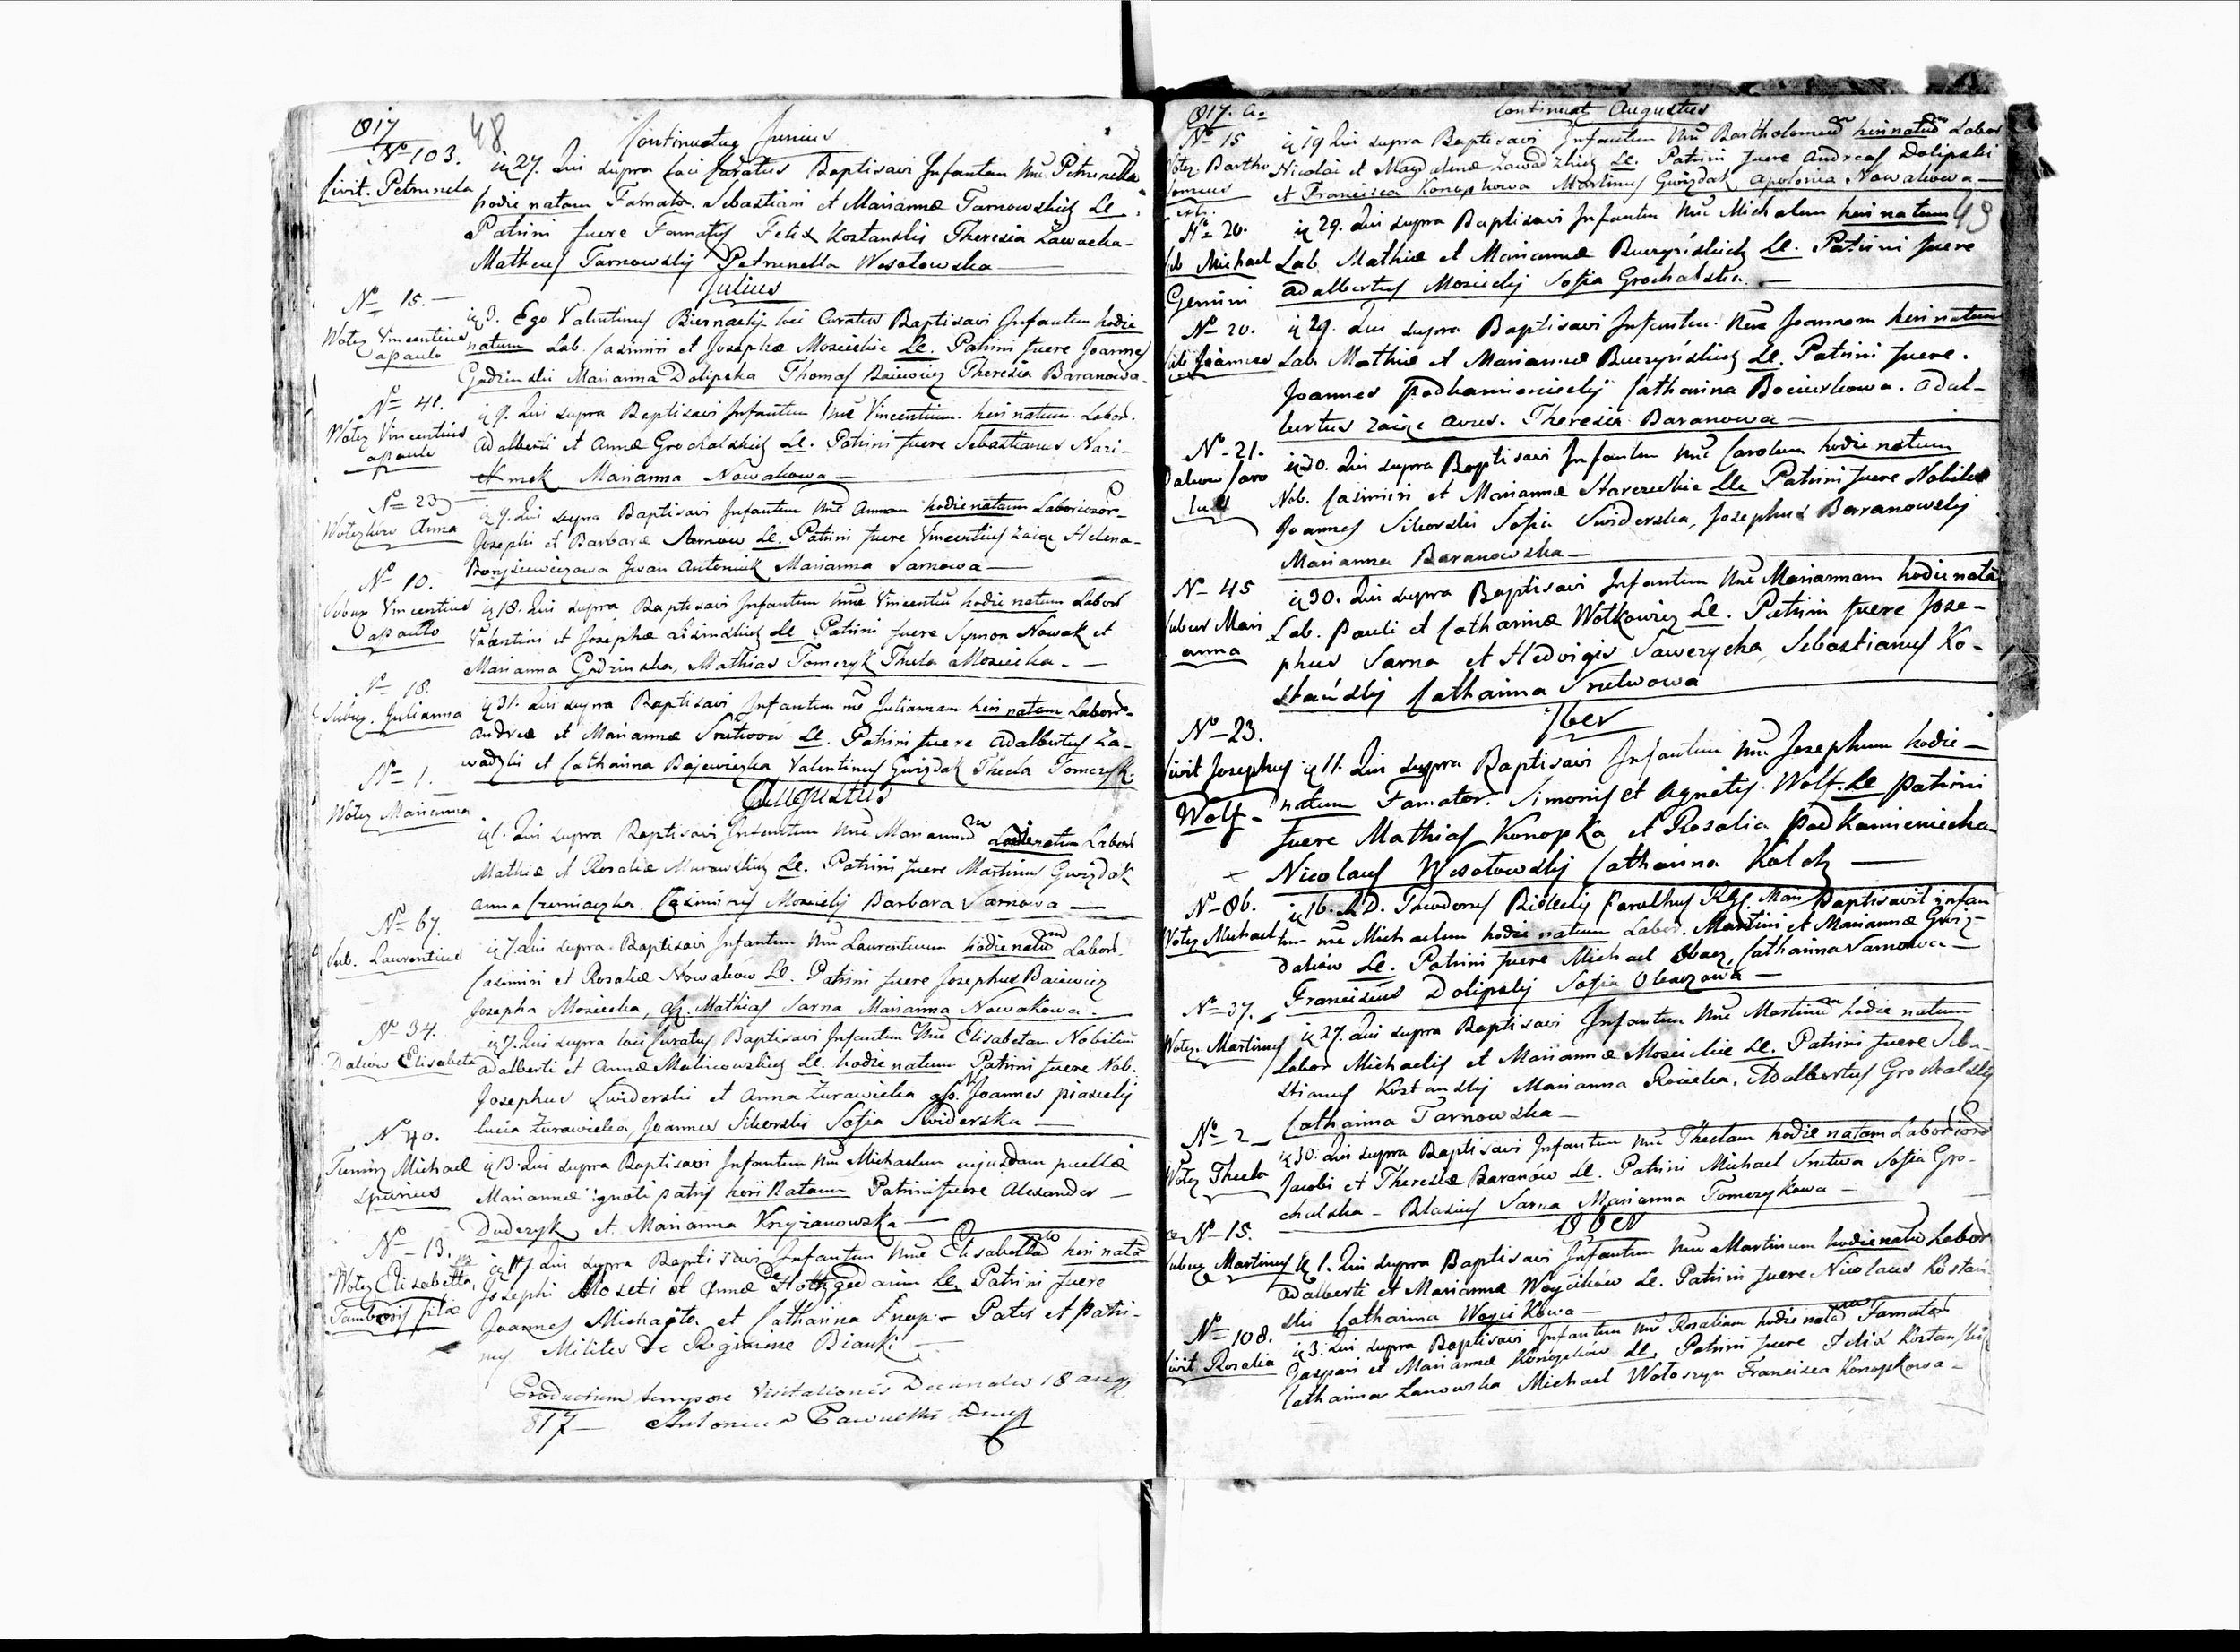 817
48
Continuatur Junius
No 103.
Civit. Petrunela
27. Qui supra loci Curatus Baptisavi Infantem nne Petrunella
hodie natam Famator. Sebastiani et Mariannæ Tarnowskich Le.
Patrini fuere Famatus Felix Kostanski Theresia Zawacka
Matheus Tarnowskij Petrunella Wesołowska
Julius
No 15.
Wolez Vincentius
a paulo
3. Ego Valentinus Biernackij loci Curatus Baptisavi Infantem hodie
natum Lab. Casimiri et Josephæ Moscickie Le. Patrini fuere Joannes
Godzinski Marianna Dolipska Thomas Baiewicz Theresia Baranowa
No 41.
Wolez Vincentius
a paulo
9. Qui supra Baptisavi Infantem nne Vincentium heri natum Labor.
Adalberti et Annæ Grochalskich Le. Patrini fuere Sebastianus Nazi-
mek Marianna Nowakowa
No 23
Anna
9. Qui supra Baptisavi Infantem nne Annam hodie natam Laboriosor.
Josephi et Barbaræ Sarnów Le. Patrini fuere Vincentius Zaiąc Helena
Iwan Anteniuk Marianna Sarnowa
No 10.
Vincentius
a paulo
18. Qui supra Baptisavi Infantem nne Vincentiu hodie natum Labor
Valentini et Josephæ Le Patrini fuere Symon Nowak et
Marianna Godzinska, Mathias Tomczyk Thecla Moscicka
No 18.
Subuz. Julianna
31. Qui supra Baptisavi Infantem nne Juliannam heri natam Labor
Andreæ et Mariannæ Le. Patrini fuere Adalbertus Za-
wadzki et Catharina Bajewiczka Valentinus Gwizdak Thecla Tomczyk
Augustus
No 1.
Wolez Marianna
1. Qui supra Baptisavi Infantem nne Marianna hodie natam Labor
Mathiæ et Rosaliæ Murawskich Le. Patrini fuere Martinus Gwizdak
Anna Czerniaczka, Casimirus Moscickij Barbara Sarnowa
No 67.
Sub. Laurentius
7. Qui supra Baptisavi Infantem nne Laurentium hodie natu Labor.
Casimiri et Rosaliæ Nowaków Le. Patrini fuere Josephus Baiewicz
Josepha Moscicka, Mathias Sarna Marianna Nowakowa.
No 34.
Daków Elisabeta
7. Qui supra loci Curatus Baptisavi Infantem nne Elisabetam Nobiliu
Adalberti et Annæ Malinowskich Le. hodie natam Patrini fuere Nob.
Josephus Swiderski et Anna Zurawicka Joannes Piasecky
Lucia Zurawicka, Joannes Sikorski Sofia Swiderska
No 40.
Michael
spurius
13. Qui supra Baptisavi Infantem nne Michaelem cujusdam puellæ
Mariannæ ignoti patris heri Natum Patrini fuere Alexander
Duderzyk et Marianna Krzyżanowska
No 13.
Wolez Elisabetta
Tamboris filia
17. Qui supra Baptisavi Infantem nne Elisabetta heri nata
Josephi Moseti et Annæ Le. Patrini fuere
Joannes et Catharina Patris et Patri-
ny Milites de Regimine
Productum tempore Visitationis Decanalis 18 aug
817 Antonius
817.
Continuat Augustus
No 15
Wolez Bartho
lomeus
19 Qui supra Baptisavi Infantem nne Bartholomeu heri natu Labor
Nicolai et Magdalenæ Zawadzkich Le. Patrini fuere Andreas Dolipski
et Francisca Konopkowa Martinus Gwizdak Apolonia Nowakowa
49
No 20.
Michael
Gemini
29. Qui supra Baptisavi Infantem nne Michalem heri natum
Lab. Mathiæ et Mariannæ Buczyńskich Le. Patrini fuere
Adalbertus Moscickij Sofia Grochalska
No 20.
Joannes
29. Qui supra Baptisavi Infantem nne Joannem heri natum
Lab. Mathiæ et Mariannæ Buczyńskich Le. Patrini fuere.
Joannes Podkamienieckij Catharina Bociurkowa. Adal-
bertus Zaiąc avus. Theresia Baranowa
No 21.
Daków Caro
lus
30. Qui supra Baptisavi Infantem nne Carolum hodie natum
Nob. Casimiri et Mariannæ Le Patrini fuere Nobiles
Joannes Sikorski Sofia Swiderska, Josephus Baranowskij
Marianna Baranowska
No 45
Subuz Mari
anna
30. Qui supra Baptisavi Infantem nne Mariannam hodie nata
Lab. Pauli et Catharinæ Wotkowicz Le. Patrini fuere Jose-
phus Sarna et Hedvigis Sawczycka, Sebastianus Ko-
stańskij Catharina
7ber
No 23.
Civit Josephus
Wolf
11. Qui supra Baptisavi Infantem nne Josephum hodie
natum Famator. Simonis et Agnetis Wolf. Le Patrini
fuere Mathias Konopka et Rosalia Podkamieniecka
Nicolaus Wesołowskij Catharina Kolck
No 86.
Wolez Michael
16. A.D. Theodorus Parochus Baptisavit infan
tem nne Michaelem hodie natum Labor. Martini et Mariannæ Gwiz-
daków Le. Patrini fuere Michael Catharina Sarnowa
Franciscus Dolipskij Sofia
No 37.
Wolez Martinus
27. Qui supra Baptisavi Infantem nne Martinu hodie natum
Labor Michaelis et Mariannæ Moscickie Le. Patrini fuere Seba-
stianus Kostanskij Marianna Adalbertus Grochalskij
Catharina Tarnowska
No 2
Wolez Thecla
30. Qui supra Baptisavi Infantem nne Theclam hodie natam Laborioso
Jacobi et Theresiæ Baranów Le. Patrini Michael Sofia Gro-
chalska Blasius Sarna Marianna Tomczykowa
8ber
No 15.
Subuz Martinus
1. Qui supra Baptisavi Infantem nne Martinum hodie natu Labor
Adalberti et Mariannæ Woycików Le. Patrini fuere Nicolaus Kostań-
ski Catharina Woycikowa
No 108.
Civit Rosalia
3. Qui supra Baptisavi Infantem nne Rosaliam hodie nata Famator
Gaspari et Mariannæ Konopków Le. Patrini fuere Felix Kostanski
Catharina Lanowska Michael Wołoszyn Francisca Konopkowa